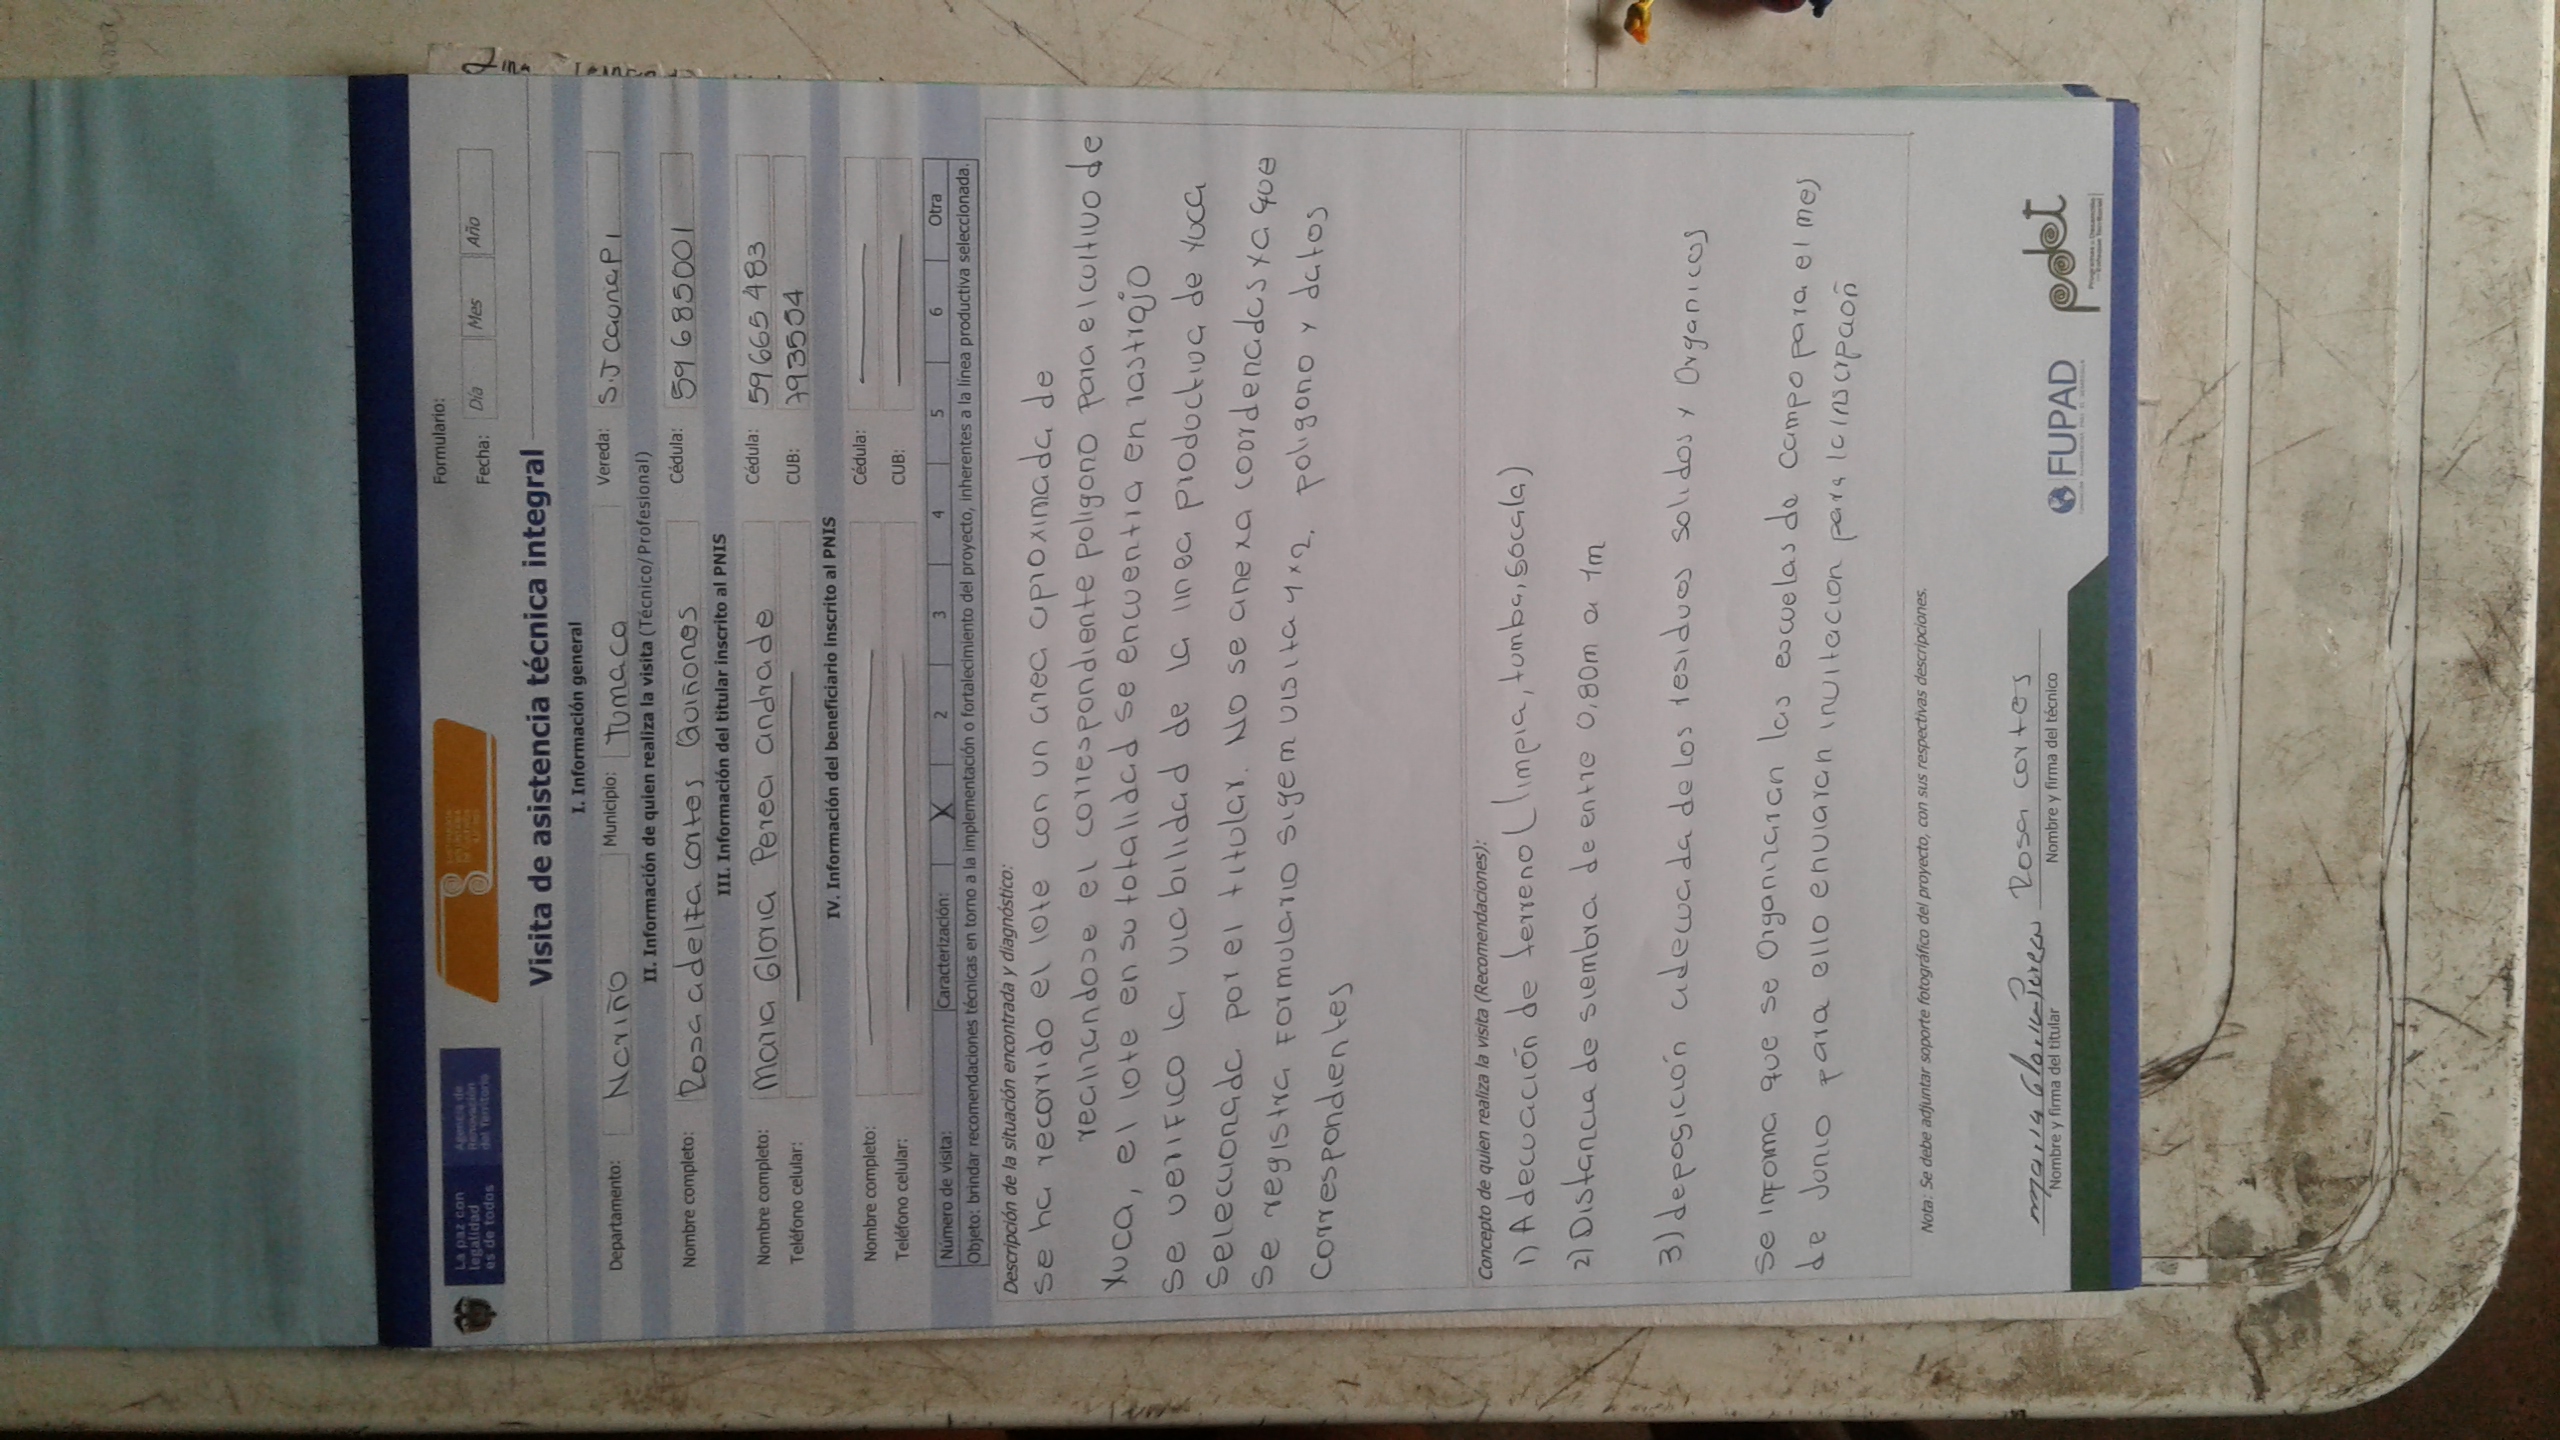 La paz con
legalidad
es de todos
Agencia de
Renovación
del Territorio
Formulario:
Fecha: Día Mes Año
Visita de asistencia técnica integral
I. Información general
Departamento: Nariño Municipio: Tumaco Vereda: S.J caunapi
II. Información de quien realiza la visita (Técnico/Profesional)
Nombre completo: Rosa adelta cortes Quiñones Cédula: 59685001
III. Información del titular inscrito al PNIS
Nombre completo: Maria Gloria Perea andrade Cédula: 59665483
Teléfono celular: CUB: 793504
IV. Información del beneficiario inscrito al PNIS
Nombre completo: Cédula:
Teléfono celular: CUB:
Número de visita: Caracterización: X 2 3 4 5 6 Otra
Objeto: brindar recomendaciones técnicas en torno a la implementación o fortalecimiento del proyecto, inherentes a la línea productiva seleccionada.
Descripción de la situación encontrada y diagnóstico:
Se ha recorrido el lote con un area aproximada de
realizandose el correspondiente poligono para el cultivo de
Yuca, el lote en su totalidad se encuentra en rastrojo
Se verifico la viabilidad de la linea productiva de yuca
Selecionada por el titular. No se anexa coordenadas ya que
Se registra Formulario sigem visita 1x2. poligono y datos
Correspondientes
Concepto de quien realiza la visita (Recomendaciones):
1) Adecuación de terreno (limpia, tumba, socala)
2) Distancia de siembra de entre 0,80m a 1m
3) deposición adecuada de los residuos solidos y Organicos
Se informa que se Organizaran las escuelas de campo para el mes
de Junio para ello enviaran invitacion para la inscripcion
Nota: Se debe adjuntar soporte fotográfico del proyecto, con sus respectivas descripciones.
maria Gloria Perea Rosa cortes
Nombre y firma del titular Nombre y firma del técnico
FUPAD
pdet